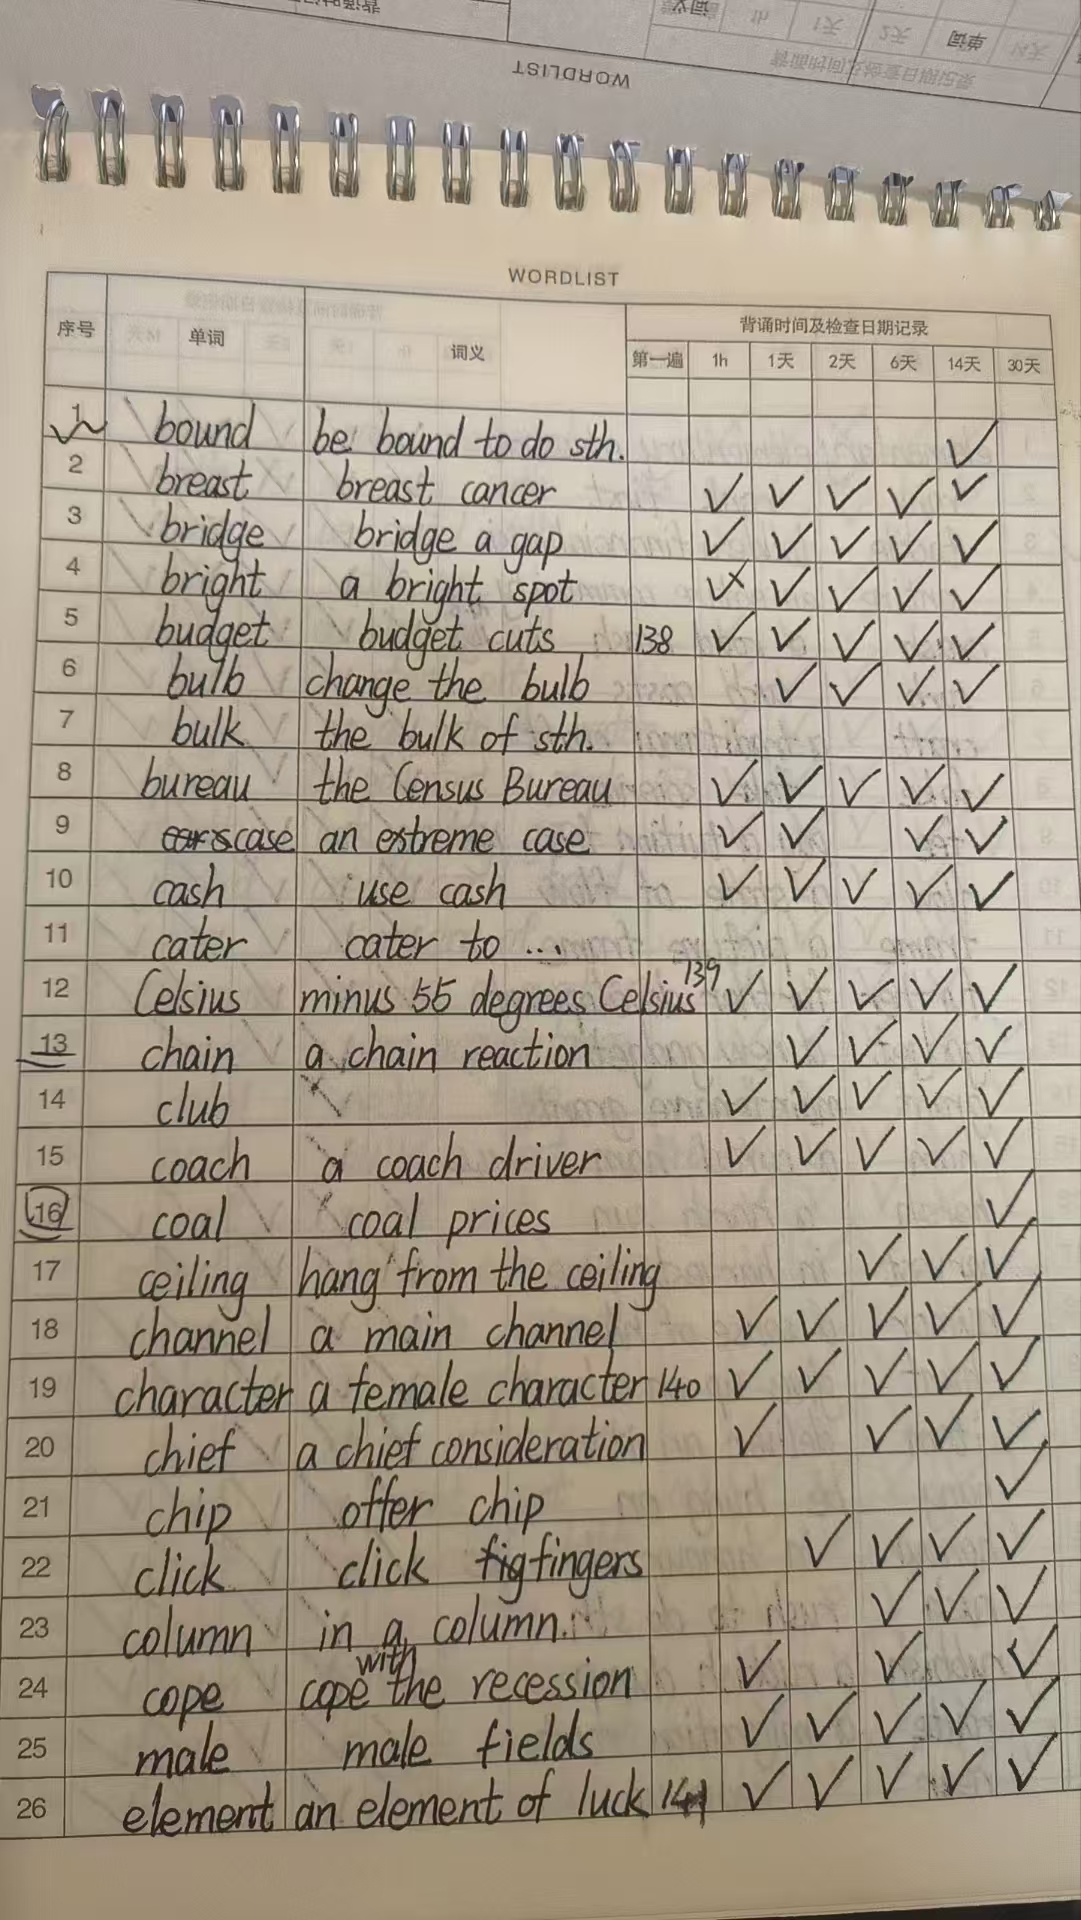 WORDLIST
WORDLIST
序号 单词 词义 背诵时间及检查日期记录
第一遍 1h 1天 2天 6天 14天 30天
1 bound be bound to do sth.
2 breast breast cancer
3 bridge bridge a gap
4 bright a bright spot
5 budget budget cuts 138
6 bulb change the bulb
7 bulk the bulk of sth.
8 bureau the Census Bureau
9 case an extreme case
10 cash use cash
11 cater cater to ...
12 Celsius minus 55 degrees Celsius 139
13 chain a chain reaction
14 club
15 coach a coach driver
16 coal coal prices
17 ceiling hang from the ceiling
18 channel a main channel
19 character a female character 140
20 chief a chief consideration
21 chip offer chip
22 click click fingers
23 column in a column.
24 cope cope with the recession
25 male male fields
26 element an element of luck 141